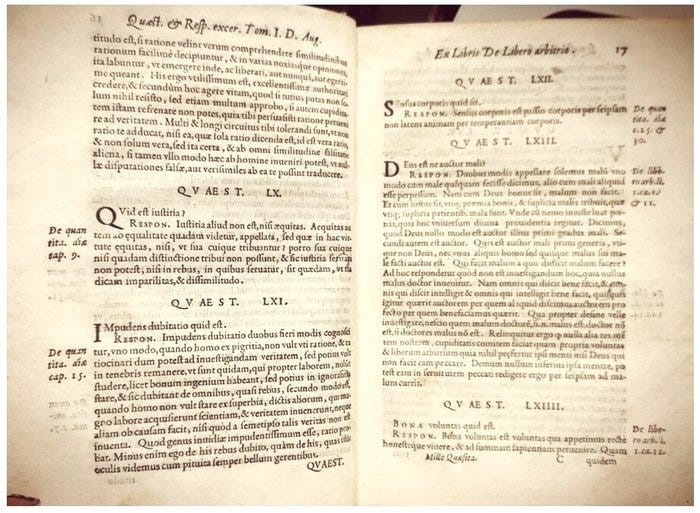 Quæst. & Resp. excer. Tom. I. D. Aug.
titudo est, si ratione velint verum comprehendere similitudinibus
rationum facilimè decipiuntur, & in varias noxiasque opiniones,
ita labuntur, vt emergere inde, ac liberari, aut nunquã, aut ægerri-
mè queant. His ergo vtilissimum est, excellentissimæ authoritati
credere, & secundùm hoc agere vitam, quod si tutius putas non so-
lum nihil resisto, sed etiam multum approbo, si autem cupidita-
tem istam te refrenare non potes, quia tibi persuasisti ratione peruenire
ad veritatem. Multi & longi circuitus tibi tolerandi sunt, vt non
ratio te adducat, nisi ea, quæ sola ratio dicenda est, id est vera ratio,
& non solum vera, sed ita certa, & ab omni similitudine falsitatis
aliena, si tamen vllo modo hæc ab homine inueniri potest, vt nul-
læ disputationes falsæ, aut verisimiles ab ea te possint traducere.
QVAEST. LX.
Quid est iustitia?
RESPON. Iustitia aliud non est, nisi æquitas. Aequitas au
tem ab equalitate quadam videtur, appellata, sed quæ in hac vir-
tute equitas, nisi, vt sua cuique tribuantur? porro sua cuique
nisi quadam distinctione tribui non possunt, & sic iustitia seruari
non potest, nisi in rebus, in quibus seruatur, sit quædam, vt ita
dicam imparilitas, & dissimilitudo.
De quan
tita. aiæ
cap. 9.
QVAEST. LXI.
Impudens dubitatio quid est.
RESPON. Impudens dubitatio duobus fieri modis cognosci
tur, vno modo, quando homo ex pigritia, non vult vti ratione, & ra
tiocinari dum potest ad inuestigandam veritatem, sed potius vult
in tenebris remanere, vt sunt quidam, qui propter laborem, nolũt
studere, licet bonum ingenium habeant, sed potius in ignorãtia
stare, & sic dubitant de omnibus, quasi rebus, secundo modo est,
quando homo non vult stare ex superbia, dictis aliorum, qui ma-
gno labore acquisierunt scientiam, & veritatem inuenerunt, neque
aliam ob causam facit, nisi quòd a semetipso talis veritas non est
inuenta. Quod genus inuidiæ impudentissimum esse, ratio pro-
bat. Minus enim ego de his rebus dubito, quàm de his, quas istis
oculis videmus cum pituita semper bellum gerentibus.
De quan
tita. aiæ
cap. 15.
QVAEST.
Ex Libris De Libero arbitrio. 17
QVAEST. LXII.
Sensus corporis quid sit.
RESPON. Sensus corporis est passio corporis per seipsam
non latens animam per temperantiam corporis.
De quan
tita. aiæ
c. 25. &
30.
QVAEST. LXIII.
Deus est ne auctor mali?
RESPON. Duobus modis appellare solemus malũ vno
modo cum male quẽquam fecisse dicimus, alio cum mali aliquid
esse perpessum. Nam cum Deus bonus sit, malum non facit.
Et cum iustus sit, vtiq; præmia bonis, & suplicia malis tribuit, quæ
vtiq; suplicia patientib. mala sunt. Vnde cũ nemo iniuste luat pœ-
nas, quia hoc vniuersum diuina prouidentia regitur. Dicimus,
quod Deus nullo modo est auctor illius primi gradus mali. Se
cundi autem est auctor. Quis est auctor mali primi generis, vti-
que non Deus, nec vnus aliquis homo sed quisque malus sui ma-
le facti auctor est. Qui facit malum a quo didicit malum facere?
Ad hoc respondetur quòd non est inuestigandum hoc, quia nullus
malum doctor inuenitur. Nam omnis doctor benefacit, & om-
nis qui discit intelligit & omnis qui intelligit bene facit, quisquis
igitur quærit auctorem per quem aliquid discimus auctorem pro
fecto per quem benefaciamus quærit. Qua propter desine velle
inuestigare, nescio quem malum doctorẽ, si.n. malus est, doctor nõ
est, si doctores malus nõ est. Relinquitur ergo ꝙ nulla alia res mẽ
tem nostram, cupiditatis comitem faciat quam propria voluntas
& liberum arbitrium quia nihil prefertur ipsi menti nisi Deus qui
non facit eam peccare. Demum nullum inferius ipsa mentre, po
test eam in seruitutem peccati redigere ergo per seipsam ad ma-
lum currit.
De libe-
ro arb. li.
1. ca. 1.
& 11.
QVAEST. LXIIII.
BONA voluntas quid est.
RESPON. Bona voluntas est voluntas qua appetimus recte
honesteque viuere, & ad summam sapientiam peruenire. Quam
De libe-
ro arb. i.
1. ca. 12.
Mille Quæsita. C quidem